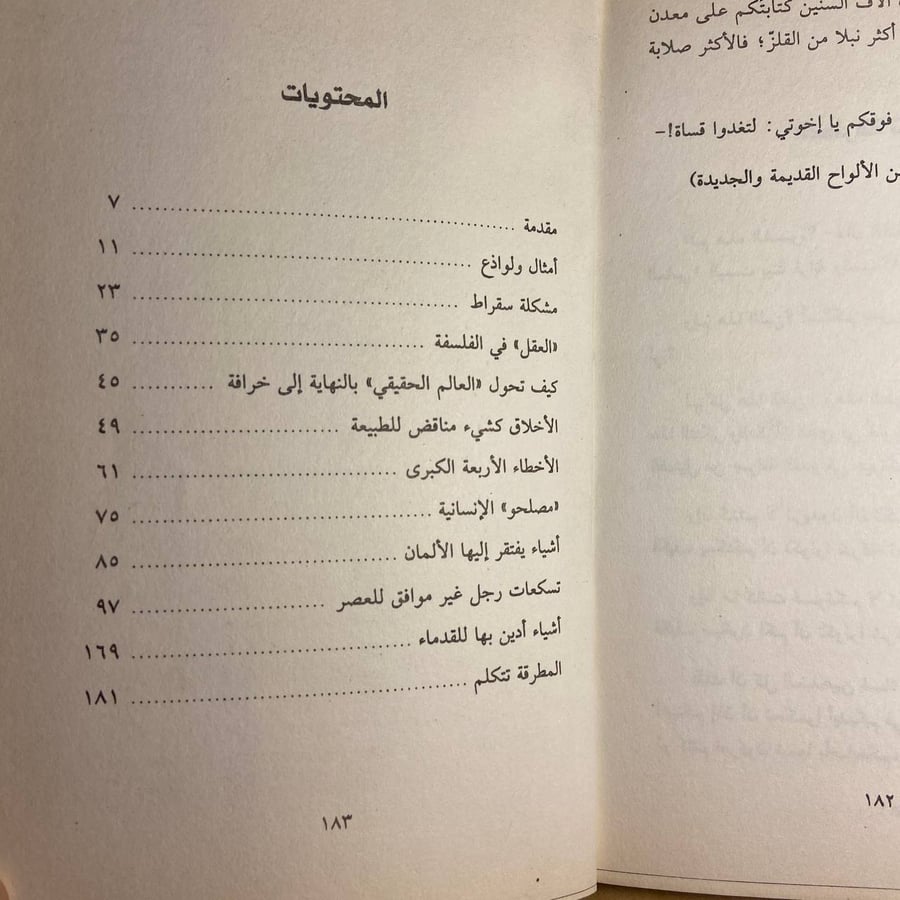 آلاف السنين كتابتكم على معدن
أكثر نبلا من القلزّ؛ فالأكثر صلابة
فوقكم يا إخوتي: لتغدوا قساة!-
الألواح القديمة والجديدة)
١٨٢
المحتويات
مقدمة ........ ٧
أمثال ولواذع ........ ١١
مشكلة سقراط ........ ٢٣
«العقل» في الفلسفة ........ ٣٥
كيف تحول «العالم الحقيقي» بالنهاية إلى خرافة ........ ٤٥
الأخلاق كشيء مناقض للطبيعة ........ ٤٩
الأخطاء الأربعة الكبرى ........ ٦١
«مصلحو» الإنسانية ........ ٧٥
أشياء يفتقر إليها الألمان ........ ٨٥
تسكعات رجل غير موافق للعصر ........ ٩٧
أشياء أدين بها للقدماء ........ ١٦٩
المطرقة تتكلم ........ ١٨١
١٨٣